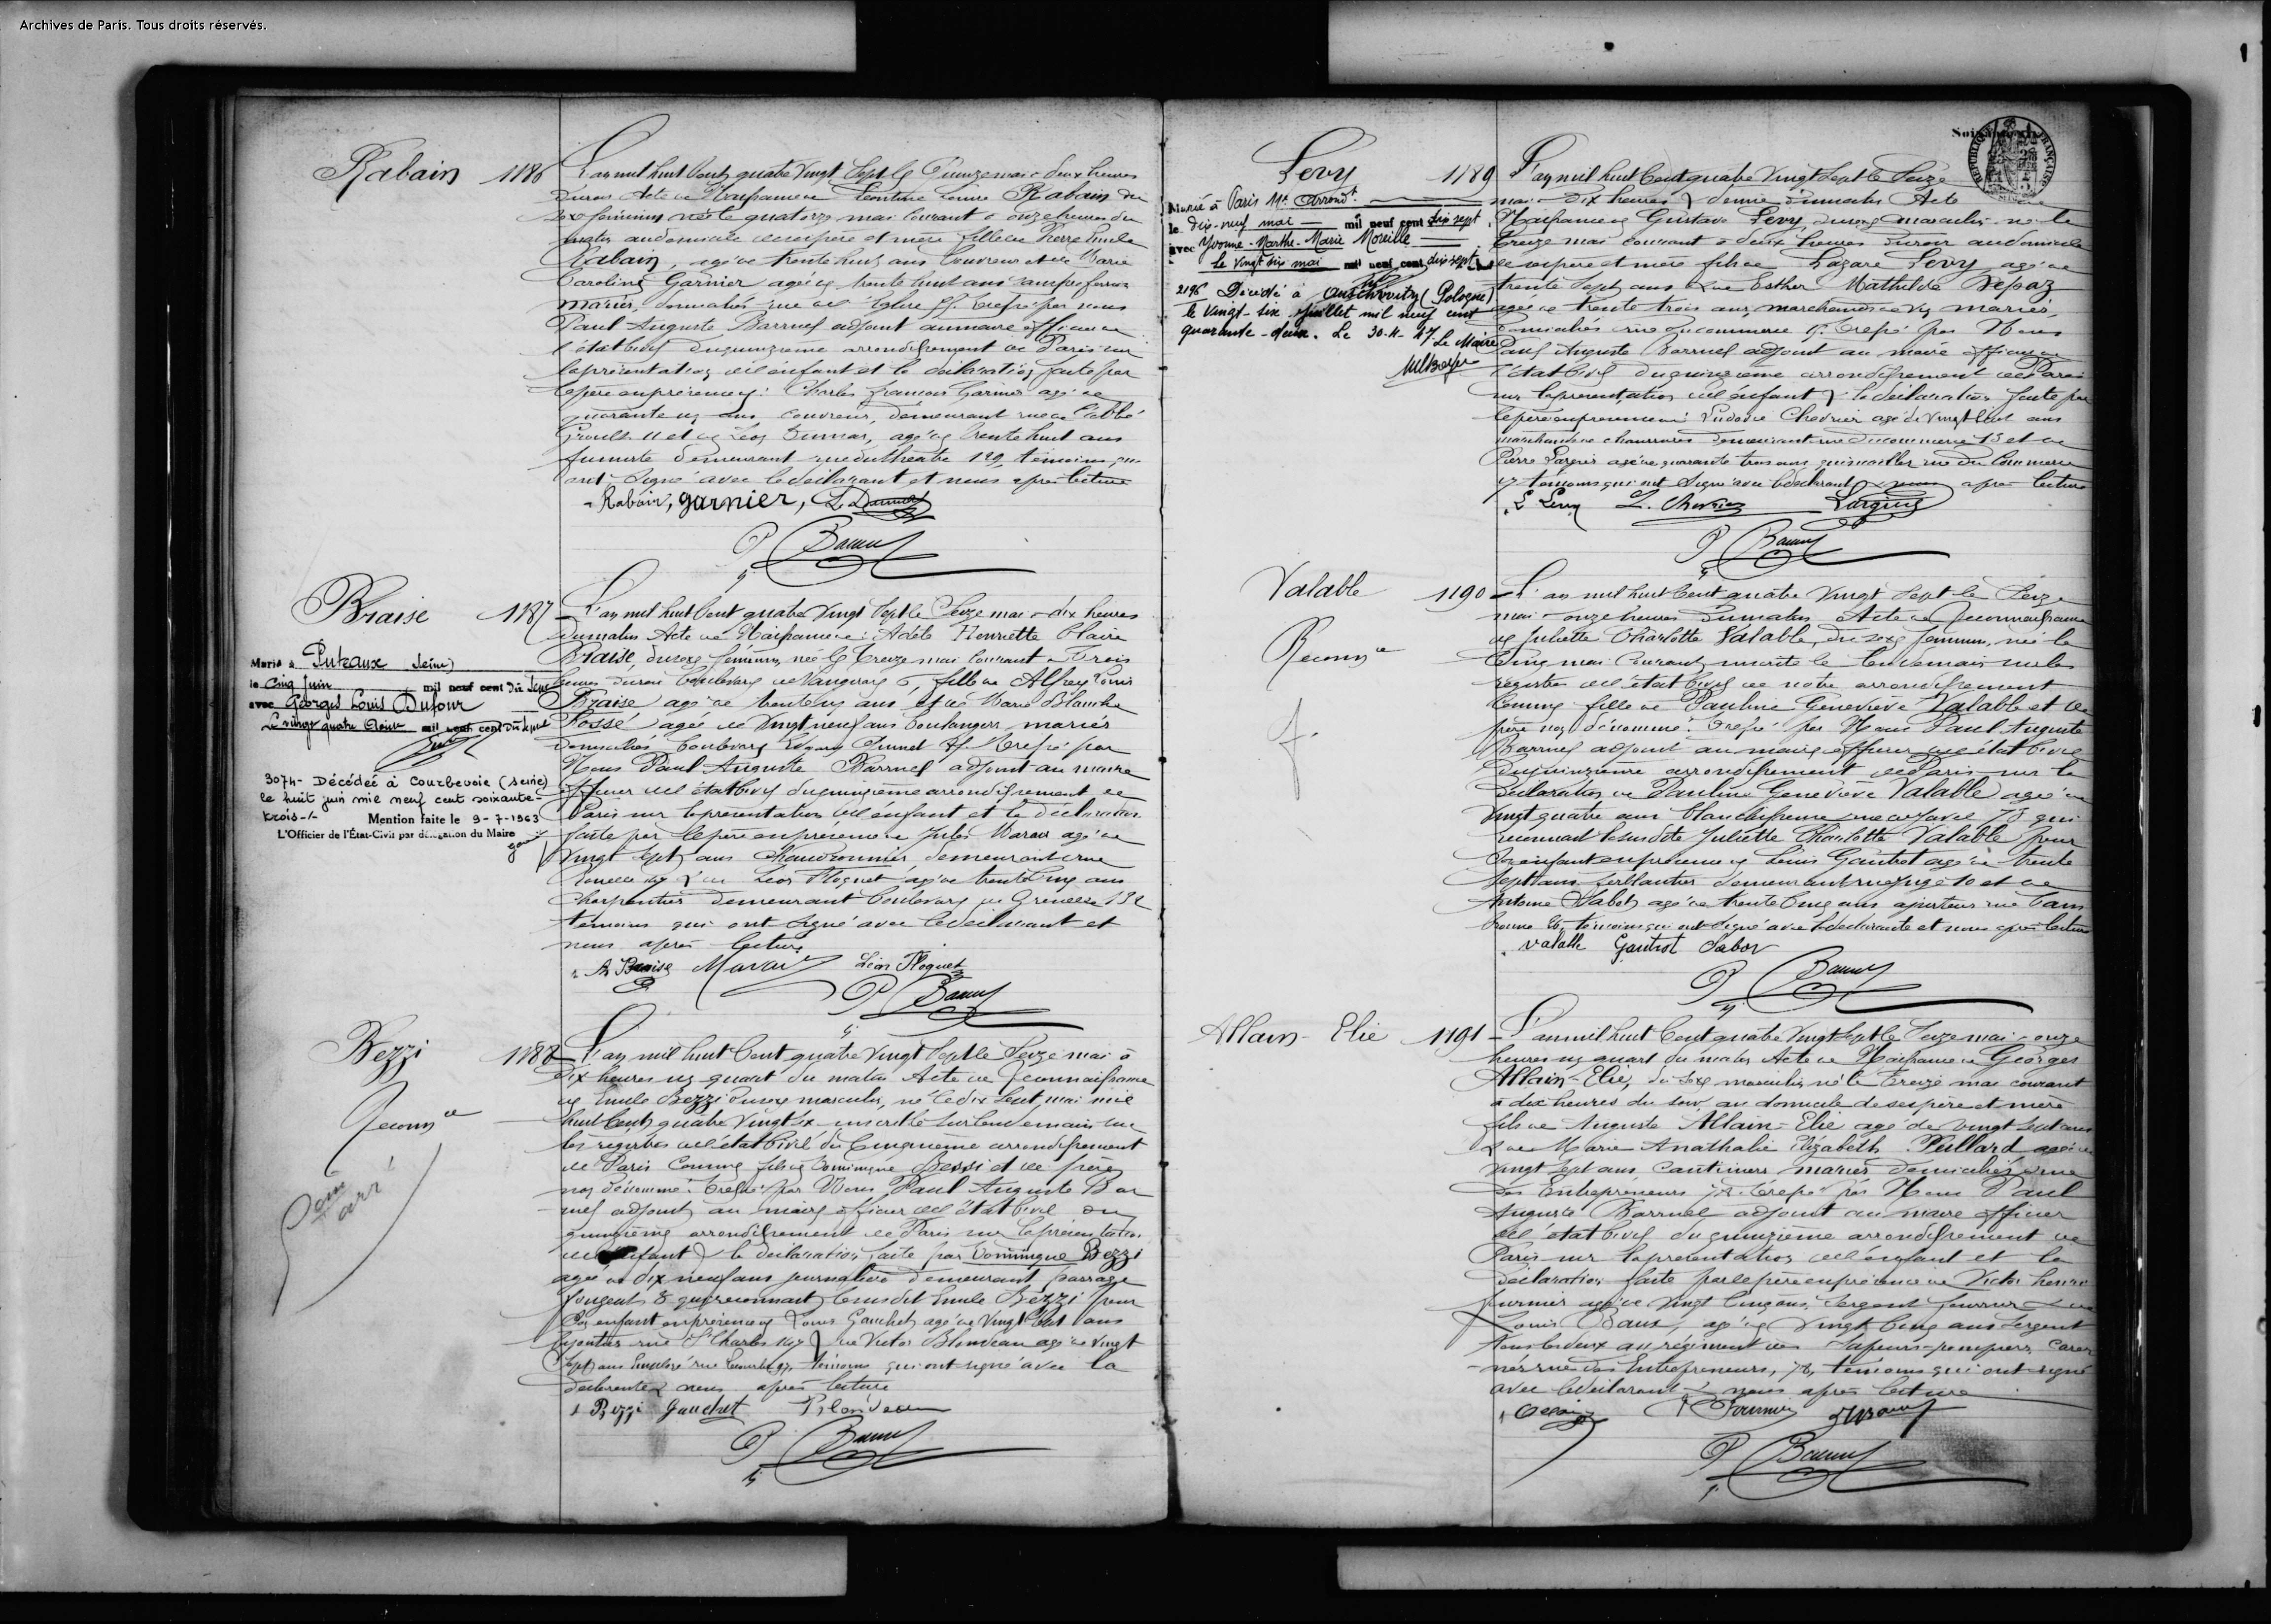 Archives de Paris. Tous droits réservés.
Rabain 1186
L'an mil huit cent quatre vingt sept le Quinze mai à deux heures
du soir Acte de Naissance de Léontine Louise Rabain du
sexe féminin née le quatorze mai courant à onze heures du
matin au domicile de ses père et mère fille de Pierre Emile
Rabain, âgé de trente huit ans couvreur et de Marie
Caroline Garnier âgée de trente huit ans sans profession
mariés, domiciliés rue de l'Eglise Dressé par nous
Paul Auguste Barruel adjoint au maire officier de
l'état civil du quinzième arrondissement de Paris sur
la présentation de l'enfant et la déclaration faite par
le père en présence de Charles François Garnier âgé de
quarante un ans couvreur, demeurant rue de l'abbé
Groult 11 et de Léon Dumas, âgé de trente huit ans
fumiste demeurant rue du théâtre 129, témoins qui
ont signé avec le déclarant et nous après lecture
Rabain, garnier,
P Barruel
Braise 1187
Marié à Puteaux (Seine)
le cinq juin mil neuf cent dix sept
avec Georges Louis Dufour
Le vingt quatre Août mil neuf cent dix sept
3074- Décédée à Courbevoie (Seine)
le huit juin mil neuf cent soixante-
trois-/-
Mention faite le 9-7-1963
L'Officier de l'État-Civil par délégation du Maire
L'an mil huit cent quatre vingt sept le Seize mai à dix heures
du matin Acte de Naissance de Adèle Henriette Claire
Braise, du sexe féminin, née le treize mai courant à Trois
heures du soir boulevard de Vaugirard, fille de Alfred Louis
Braise âgé de trente un ans et de Marie Blanche
Fossé âgée de vingt neuf ans boulangers mariés
domiciliés boulevard Edgard Quinet Dressé par
Nous Paul Auguste Barruel adjoint au maire
officier de l'état civil du quinzième arrondissement de
Paris sur la présentation de l'enfant et la déclaration
faite par le père en présence de Jules Marais âgé de
Vingt sept ans Chaudronnier demeurant rue
Léon Floquet âgé de trente cinq ans
Charpentier demeurant boulevard de Grenelle
témoins qui ont signé avec le déclarant et
nous après lecture
A Braise Léon Floquet
P Barruel
Bezzi 1188
Reconnce
L'an mil huit cent quatre vingt sept le Seize mai à
dix heures un quart du matin Acte de Reconnaissance
de Emile Bezzi du sexe masculin, né le dix sept mai mil
huit cent quatre vingt six inscrit le surlendemain sur
les registres de l'état civil du Cinquième arrondissement
de Paris comme fils de Dominique Bessi et de
non dénommé. Dressé par Nous Paul Auguste Bar
ruel adjoint au maire officier de l'état civil du
quinzième arrondissement de Paris sur la présentation
de l'enfant & la déclaration faite par Dominique Bezzi
âgée de dix neuf ans journalière demeurant passage
qui reconnait le susdit Emile Bezzi pour
son enfant en présence de Louis Gauchet âgé de vingt huit ans
bijoutier rue St Charles & de Victor Blondeau âgé de vingt
sept ans Employé rue témoins qui ont signé avec la
déclarante & nous après lecture
Bezzi Gauchet Blondeau
P Barruel
Levy 1189
Marié à Paris 11e Arrondt
le dix-neuf mai mil neuf cent dix sept
avec Yvonne-Marthe-Marie Moreille
Le vingt six mai mil neuf cent dix sept
2196 Décédé à Auschwitz (Pologne)
le vingt-six juillet mil neuf cent
quarante-deux. Le 30-4-47 Le Maire
L'an mil huit cent quatre vingt sept le Seize
mai à dix heures & demie du matin Acte de
Naissance de Gustave Levy, du sexe masculin né le
treize mai courant à deux heures du soir au domicile
de ses père et mère fils de Lazare Levy âgé de
trente sept ans & de Esther Mathilde Depaz
âgée de trente trois ans, marchands de vin mariés,
domiciliés rue du commerce Dressé par Nous
Paul Auguste Barruel adjoint au maire officier de
l'état civil du quinzième arrondissement de Paris
sur la présentation de l'enfant & la déclaration faite par
le père en présence de Ludovic Chevrier âgé de vingt huit ans
marchand de chaussures demeurant rue du commerce 13 et de
Pierre Largins âgé de quarante trois ans quincailler rue du Commerce
témoins qui ont signé avec le déclarant & nous après lecture
L Levy L. Chevrier Largins
P Barruel
Valable 1190
Reconnce
L'an mil huit cent quatre vingt sept le Seize
mai à onze heures du matin Acte de Reconnaissance
de Juliette Charlotte Valable, du sexe féminin, née le
Cinq mai courant, inscrite le lendemain sur les
registres de l'état civil de notre arrondissement
comme fille de Pauline Geneviève Valable et de
père non dénommé. Dressé par Nous Paul Auguste
Barruel adjoint au maire officier de l'état civil
du quinzième arrondissement de Paris sur la
déclaration de Pauline Geneviève Valable âgée de
vingt quatre ans blanchisseuse qui
reconnait la susdite Juliette Charlotte Valable pour
son enfant en présence de Louis Gautrot âgé de trente
sept ans ferblantier demeurant et de
Antoine Sabot âgé de trente cinq ans ajusteur rue
témoins qui ont signé avec la déclarante et nous après lecture
valable Gautrot Sabot
P Barruel
Allain-Elie 1191
L'an mil huit cent quatre vingt sept le Seize mai à onze
heures un quart du matin Acte de Naissance de Georges
Allain-Elie, du sexe masculin, né le treize mai courant
à dix heures du soir, au domicile de ses père et mère
fils de Auguste Allain-Elie âgé de vingt sept ans
& de Marie Anathalie Elizabeth Pullard âgée de
vingt sept ans Cantiniers mariés domiciliés rue
des Entrepreneurs 78. Dressé par Nous Paul
Auguste Barruel adjoint au maire officier
de l'état civil du quinzième arrondissement de
Paris sur la présentation de l'enfant et la
déclaration faite par le père en présence de Victor henri
fournier âgé de vingt cinq ans, Sergent fourrier & de
Louis âgé de vingt cinq ans Sergent
tous les deux au régiment des Sapeurs-pompiers, Caser
nés rue des Entrepreneurs, 78, témoins qui ont signé
avec le déclarant & nous après lecture
Fournier
P Barruel